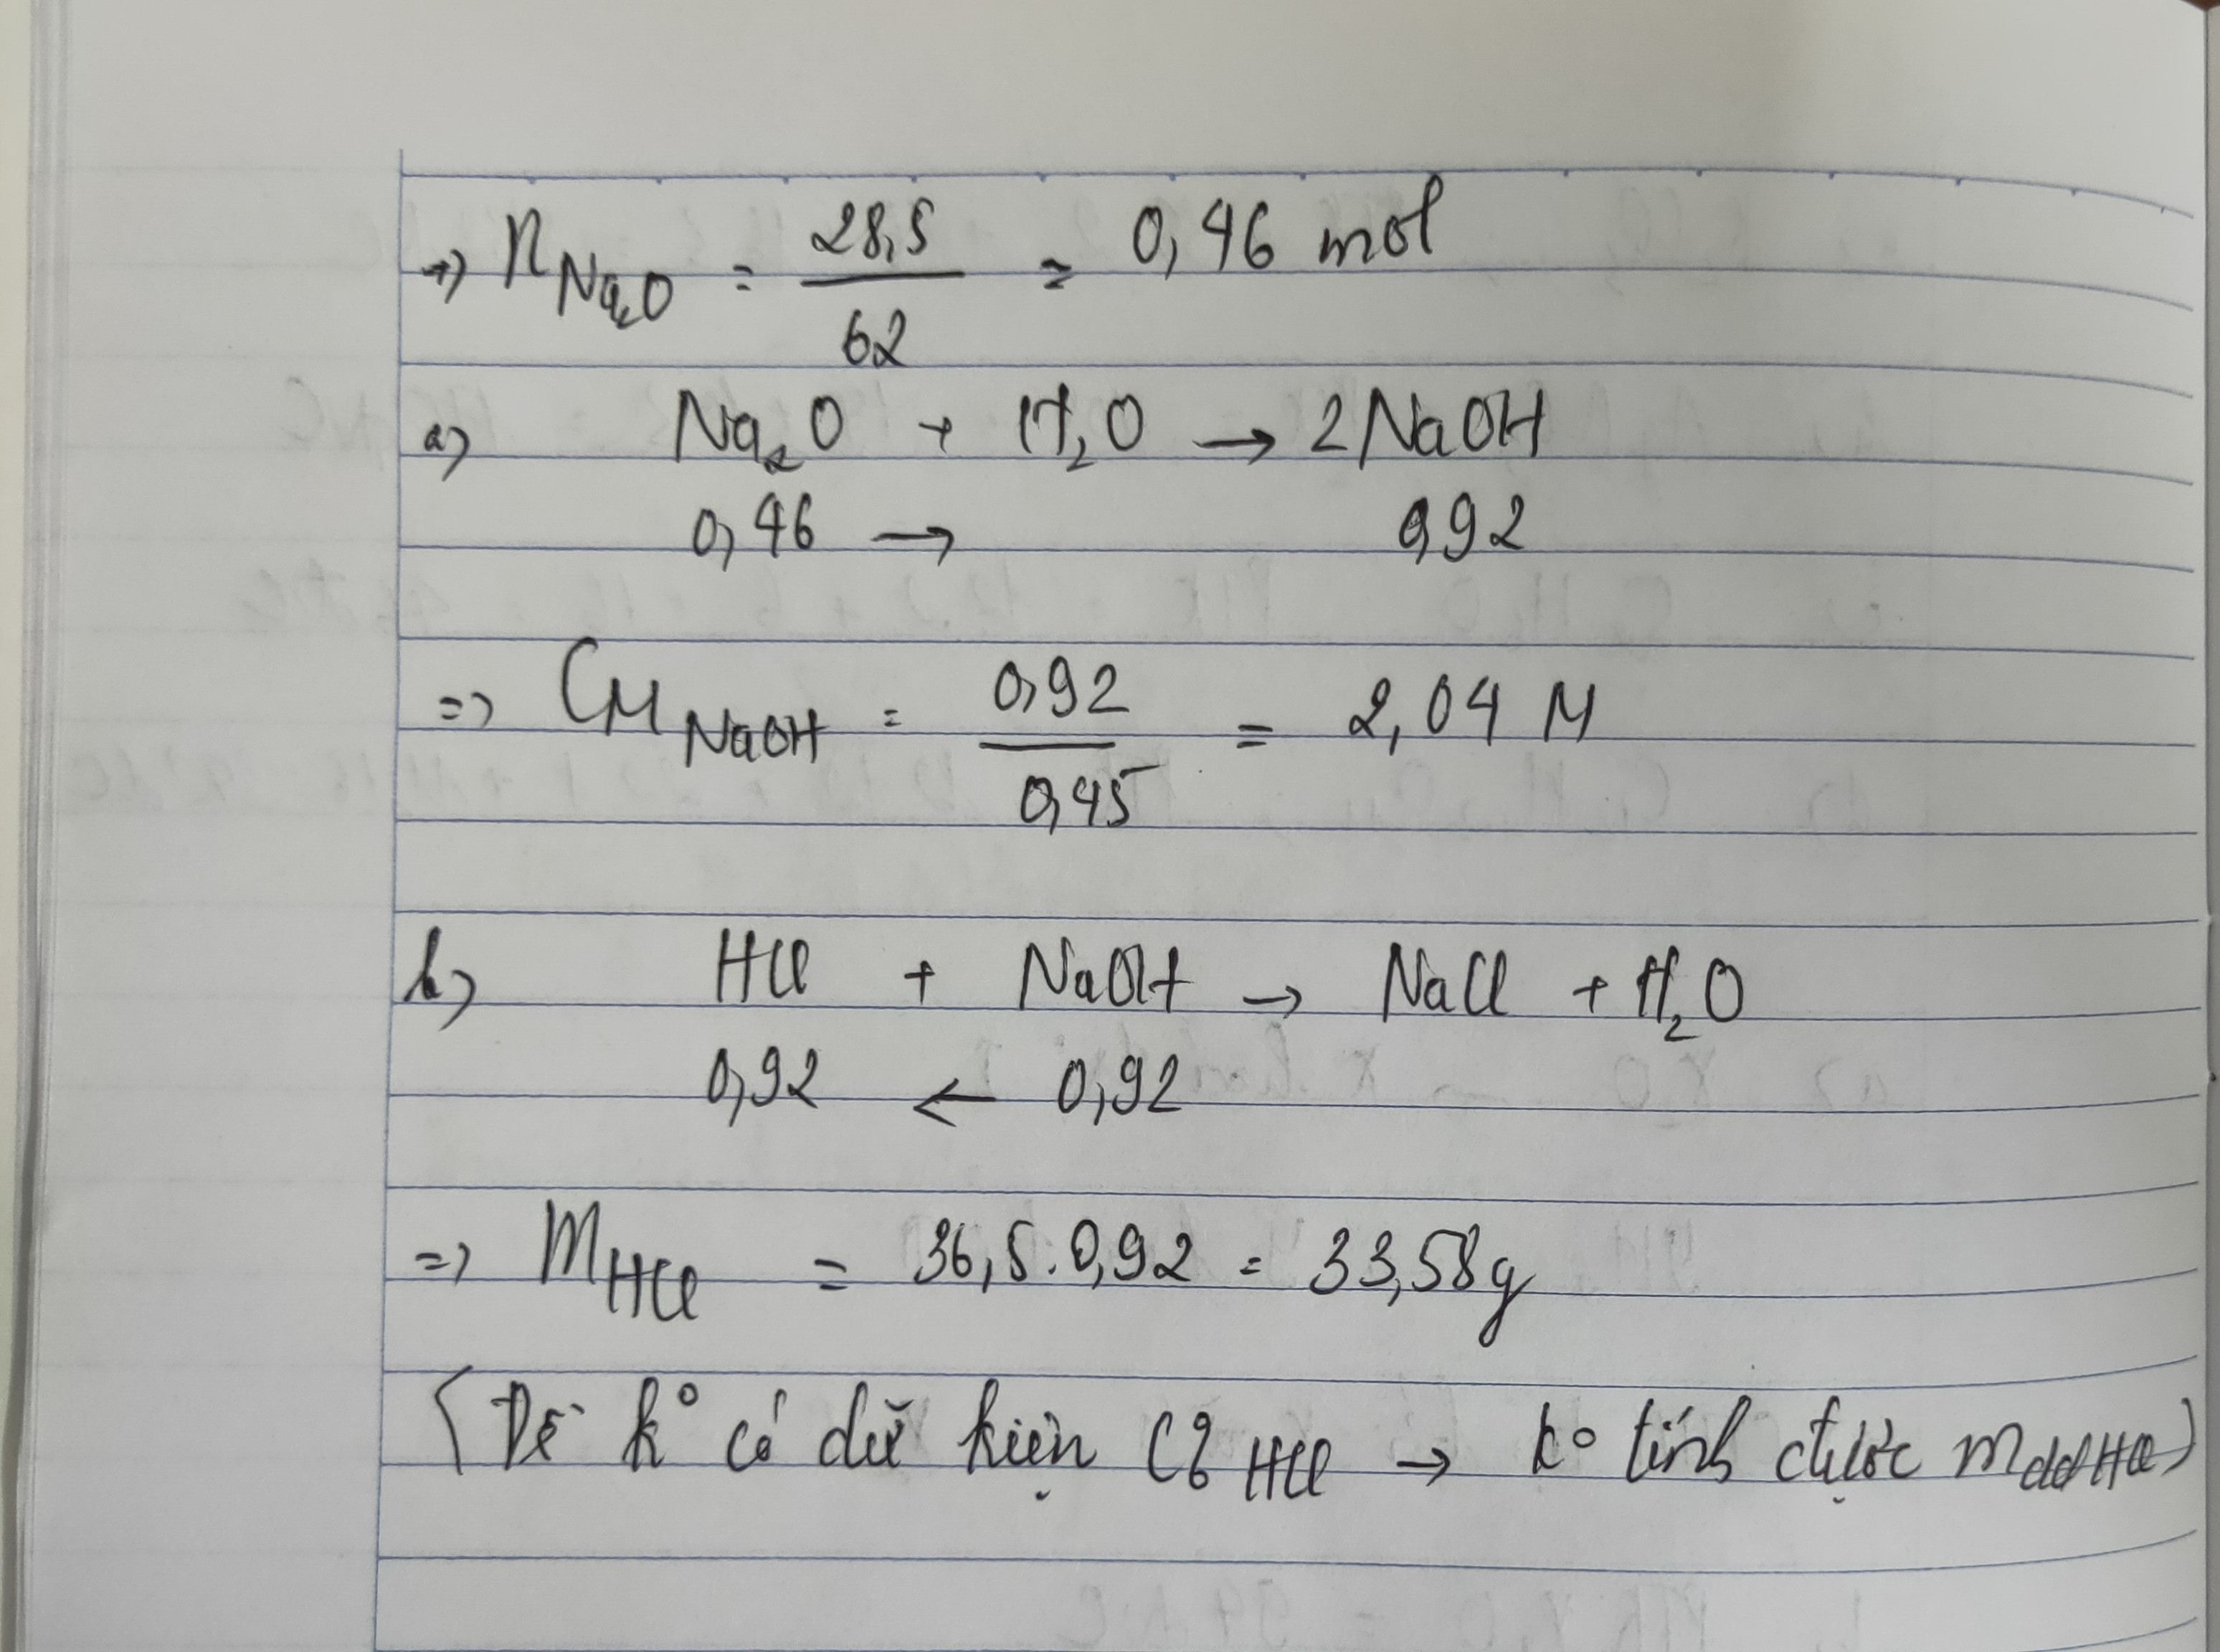 => n Na₂O = 28,5 / 62 = 0,46 mol
a) Na₂O + H₂O → 2 NaOH
0,46 → 0,92
=> CM NaOH = 0,92 / 0,45 = 2,04 M
b) HCl + NaOH → NaCl + H₂O
0,92 ← 0,92
=> m HCl = 36,5 . 0,92 = 33,58g
(Đề k° có dữ kiện C% HCl → k° tính được m dd HCl)